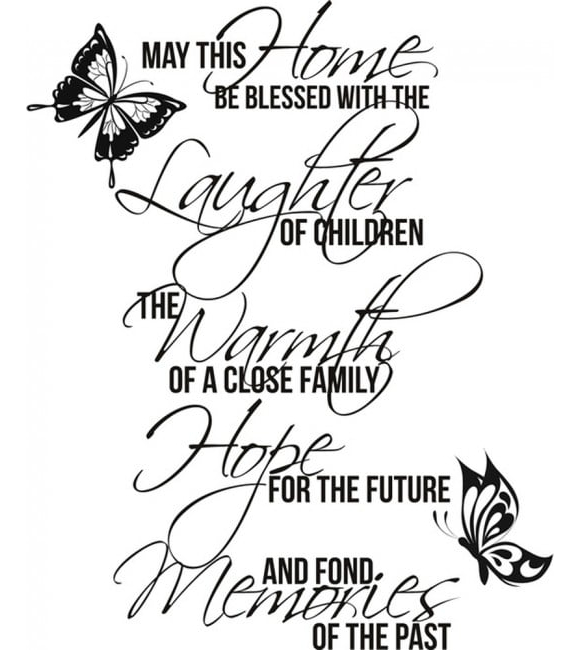 MAY THIS Home
BE BLESSED WITH THE
Laughter
OF CHILDREN
THE Warmth
OF A CLOSE FAMILY
Hope
FOR THE FUTURE
AND FOND
Memories
OF THE PAST